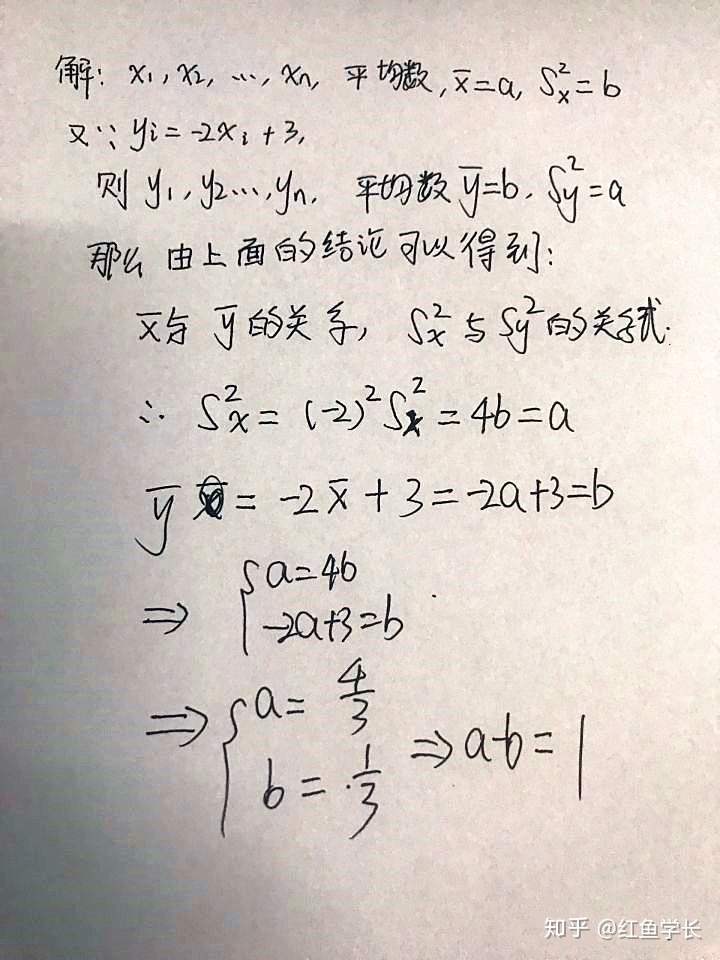 解: x₁, x₂, …, xₙ, 平均数, x̄=a, Sₓ²=b
又∵ yi=-2xi+3,
则 y₁, y₂…, yₙ, 平均数 ȳ=b, Sy²=a
那么 由上面的结论可以得到:
x̄与 ȳ的关系, Sₓ²与Sy²的关系式.
∴ Sₓ²=(-2)²Sₓ²=4b=a
ȳ = -2x̄+3=-2a+3=b
⇒ {a=4b
-2a+3=b
⇒ {a= 4/3
b= 1/3 ⇒ a-b=1
知乎 @红鱼学长